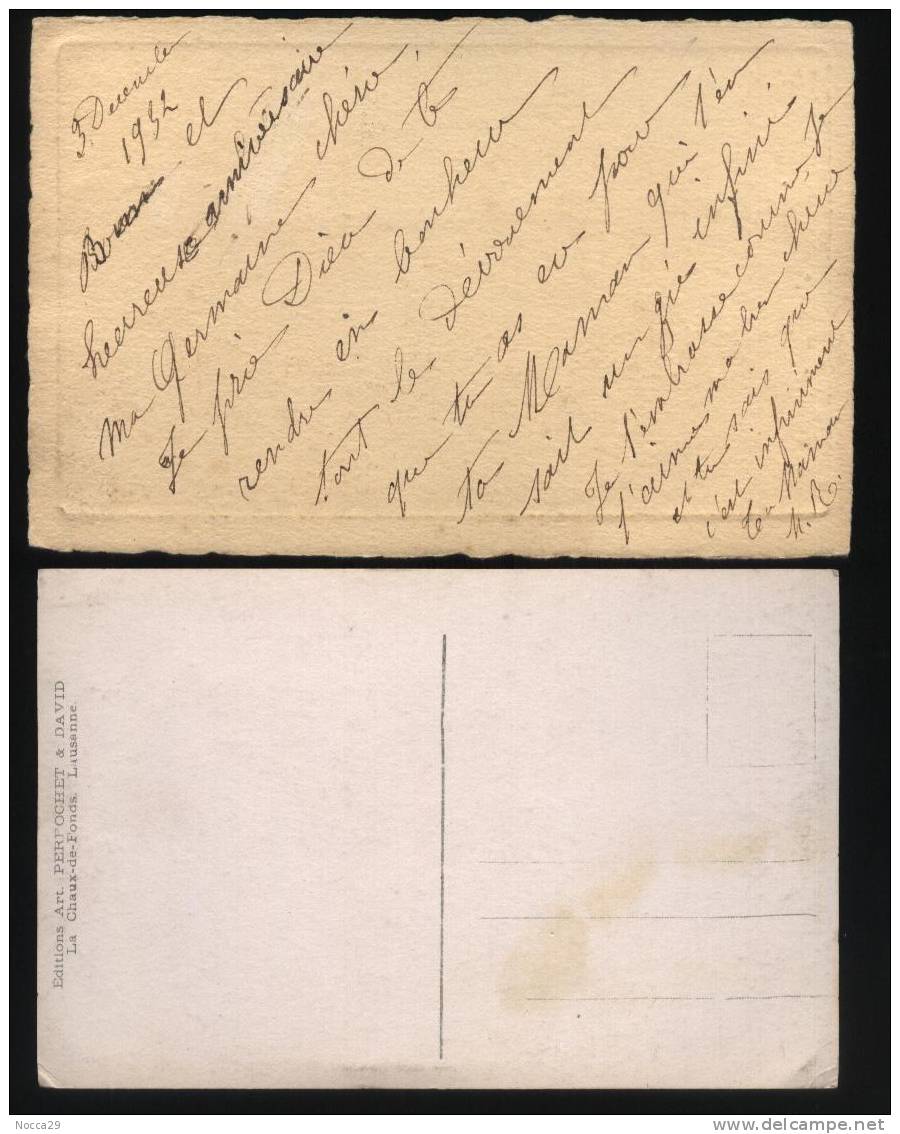 3 Decembre
1932
Bon et
heureuse anniversaire
Ma Germaine chérie,
Je prie Dieu de te
rendre en bonheur
tout le dévouement
que tu as eu pour
ta Maman qui t'en
sait un gré infini
Je t'embrasse comme Je
t'aime ma bien chère
et tu sais que
c'est infiniment
Ta Maman
M. R.
Editions Art. PERROCHET & DAVID
La Chaux-de-Fonds. Lausanne.
Nocca29
delcampe.net